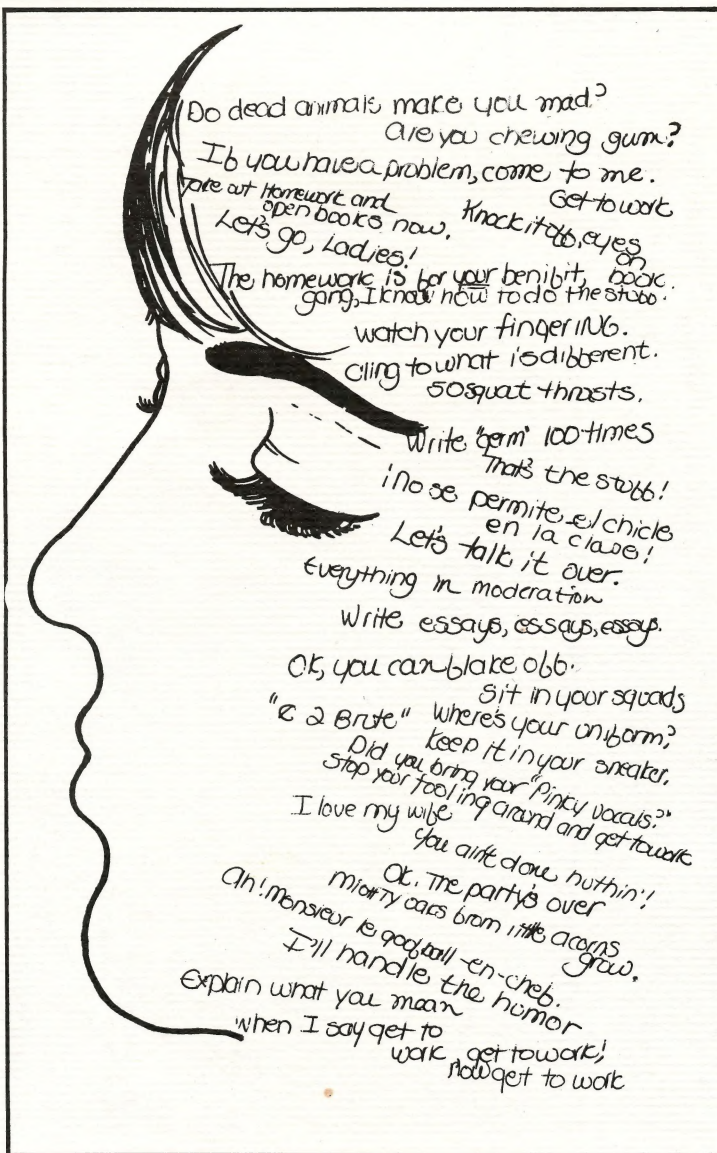 Do dead animals make you mad?
Are you chewing gum?
If you have a problem, come to me.
Get to work
Take out Homework and
open books now.
Knock it off, eyes
on
book.
Let's go, Ladies!
The homework is for your benifit,
gang, I know how to do the stuff.
watch your fingerING.
Cling to what is different.
50 squat thrusts.
Write "germ" 100 times
That's the stuff!
¡No se permite el chicle
en la clase!
Let's talk it over.
Everything in moderation
Write essays, essays, essays.
OK, you can blake off.
Sit in your squads
"E 2 Brute"
Where's your uniform?
Keep it in your sneaker.
Did you bring your "Pinky vocals?"
Stop your fooling around and get to work
I love my wife
You ain't done nuthin'!
OK. The party's over
Mighty oaks from little acorns
grow.
Ah! Monsieur le goofball-en-chef.
I'll handle the humor
Explain what you mean
when I say get to
work, get to work!
now get to work